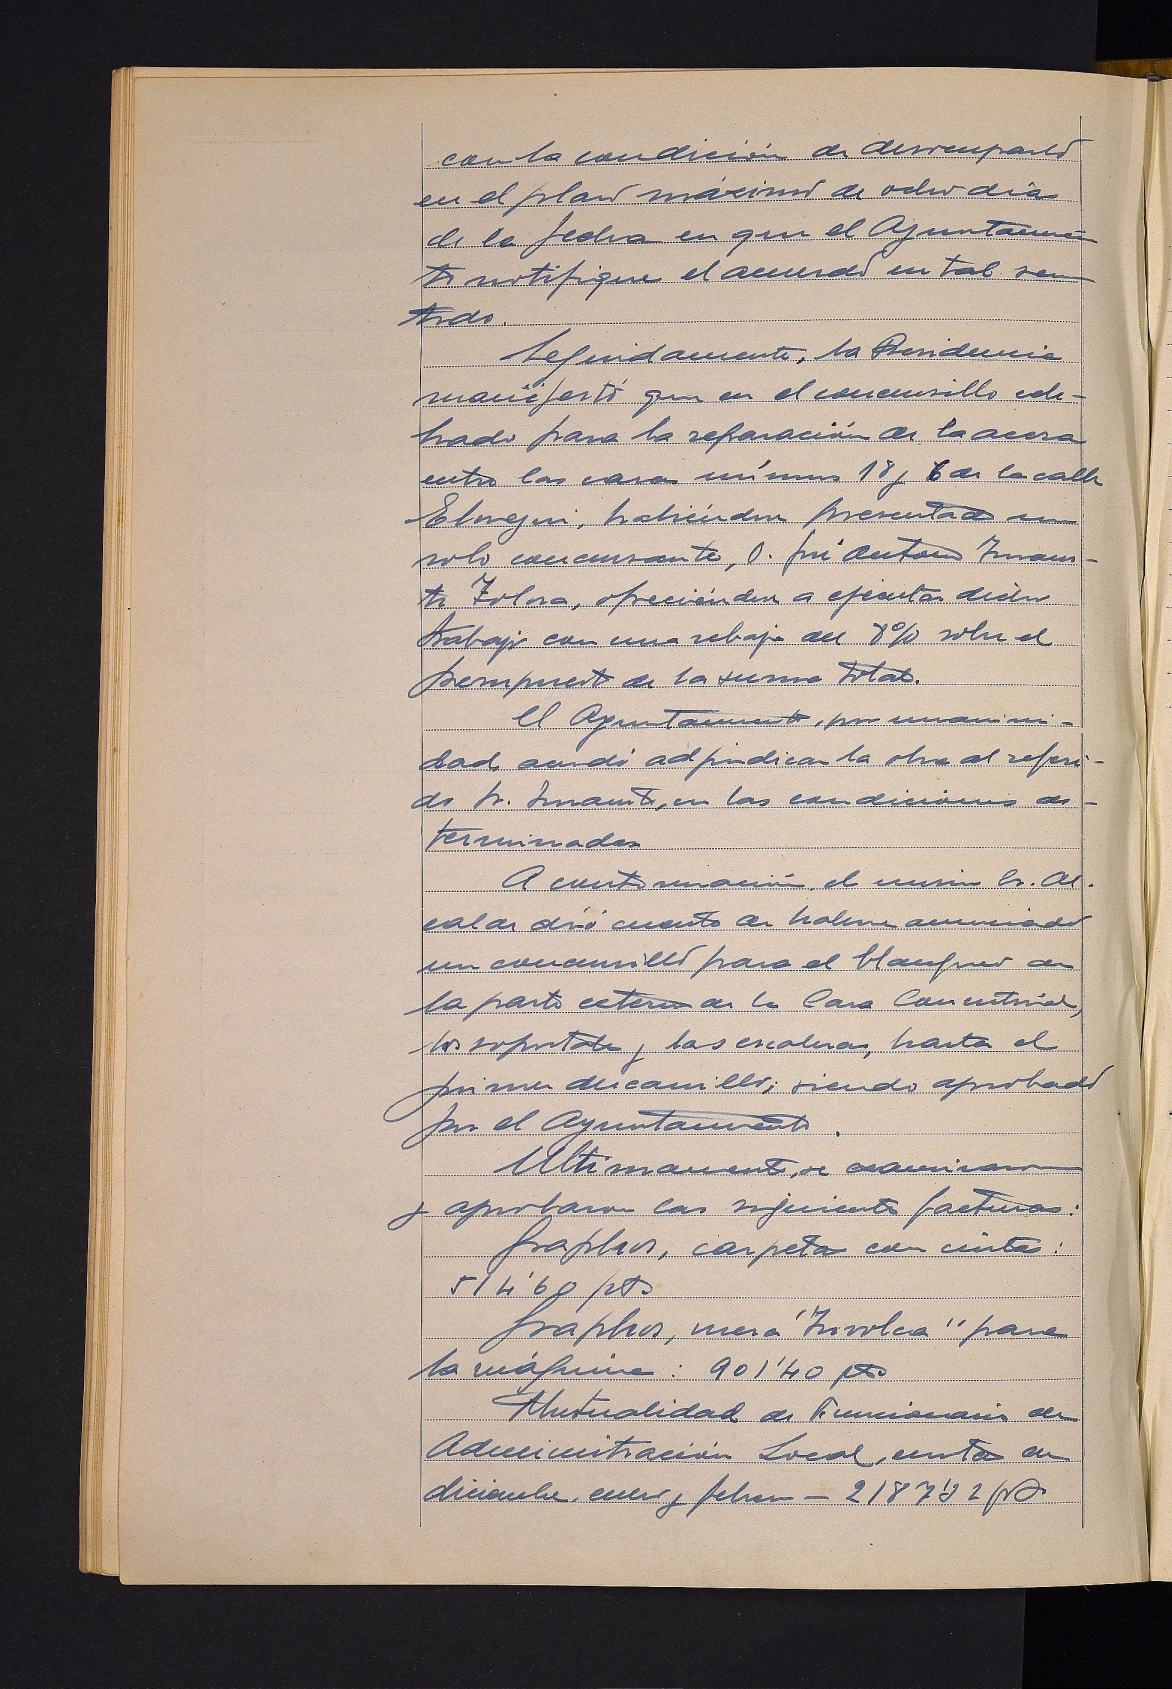 con la condición de desocuparlo
en el plazo máximo de ocho días
de la fecha en que el Ayuntamien
to notifique el acuerdo en tal sen
tido.
Seguidamente, la Presidencia
manifestó que en el concursillo cele-
brado para la reparación de la acera
entre las casas números 18 y 6 de la calle
Elosegui, habiéndose presentado un
solo concursante, D. José Antonio
Tolosa, ofreciéndose a ejecutar dicho
trabajo con una rebaja del 8% sobre el
presupuesto de la suma total.
El Ayuntamiento, por unanimi-
dad, acordó adjudicar la obra al referi-
do Sr. en las condiciones de-
terminadas
A continuación, el mismo Sr. Al-
calde dió cuenta de haberse anunciado
un concursillo para el blanqueo de
la parte externa de la Casa Consistorial,
los soportales y las escaleras, hasta el
primer descansillo; siendo aprobado
por el Ayuntamiento.
Ultimamente, se examinaron
y aprobaron las siguientes facturas:
Graphos, carpetas con cintas:
514'60 pts
Graphos, mesa "Involca" para
la máquina: 901'40 pts
Mutualidad de Funcionarios de
Administración Local, cuotas de
diciembre, enero y febrero — 2187'92 pts